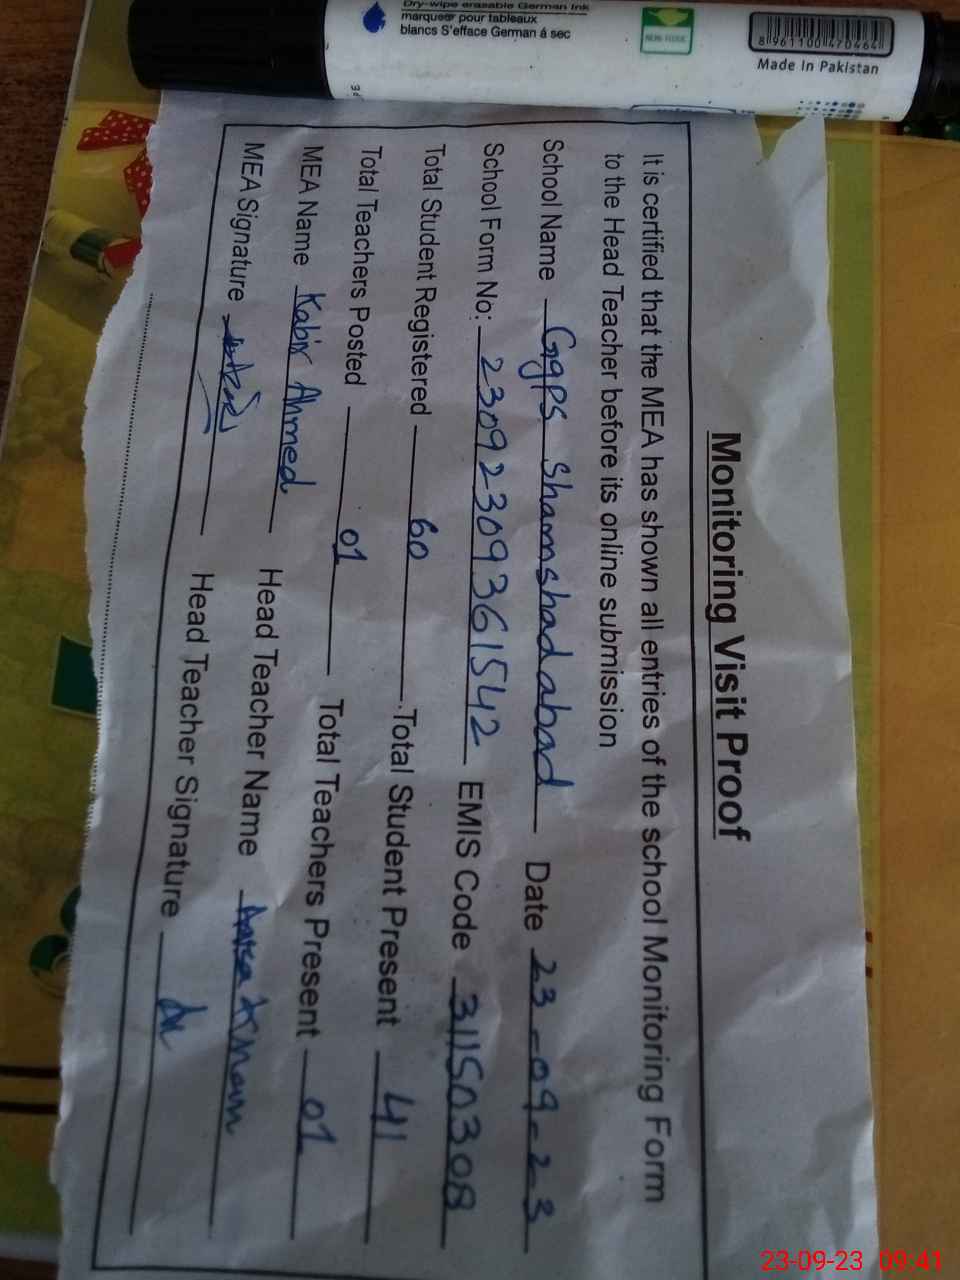 Dry-wipe erasable German Ink
marqueur pour tableaux
blancs S'efface German á sec
NON-TOXIC
8 961100 470464
Made In Pakistan
Monitoring Visit Proof
It is certified that the MEA has shown all entries of the school Monitoring Form
to the Head Teacher before its online submission
School Name Ggps Shamshadabad Date 23-09-23
School Form No: 23092309361542 EMIS Code 31150308
Total Student Registered 60 Total Student Present 41
Total Teachers Posted 01 Total Teachers Present 01
MEA Name Kabir Ahmed Head Teacher Name
MEA Signature Head Teacher Signature
23-09-23 09:41